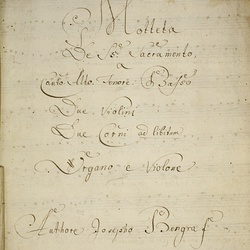 Motteta
De SS: Sacramento,
a
Canto Alto Tenore è Basso
Due Violini
Due Corni ad libitum
Organo e Violone
Authore Josepho Hengraf